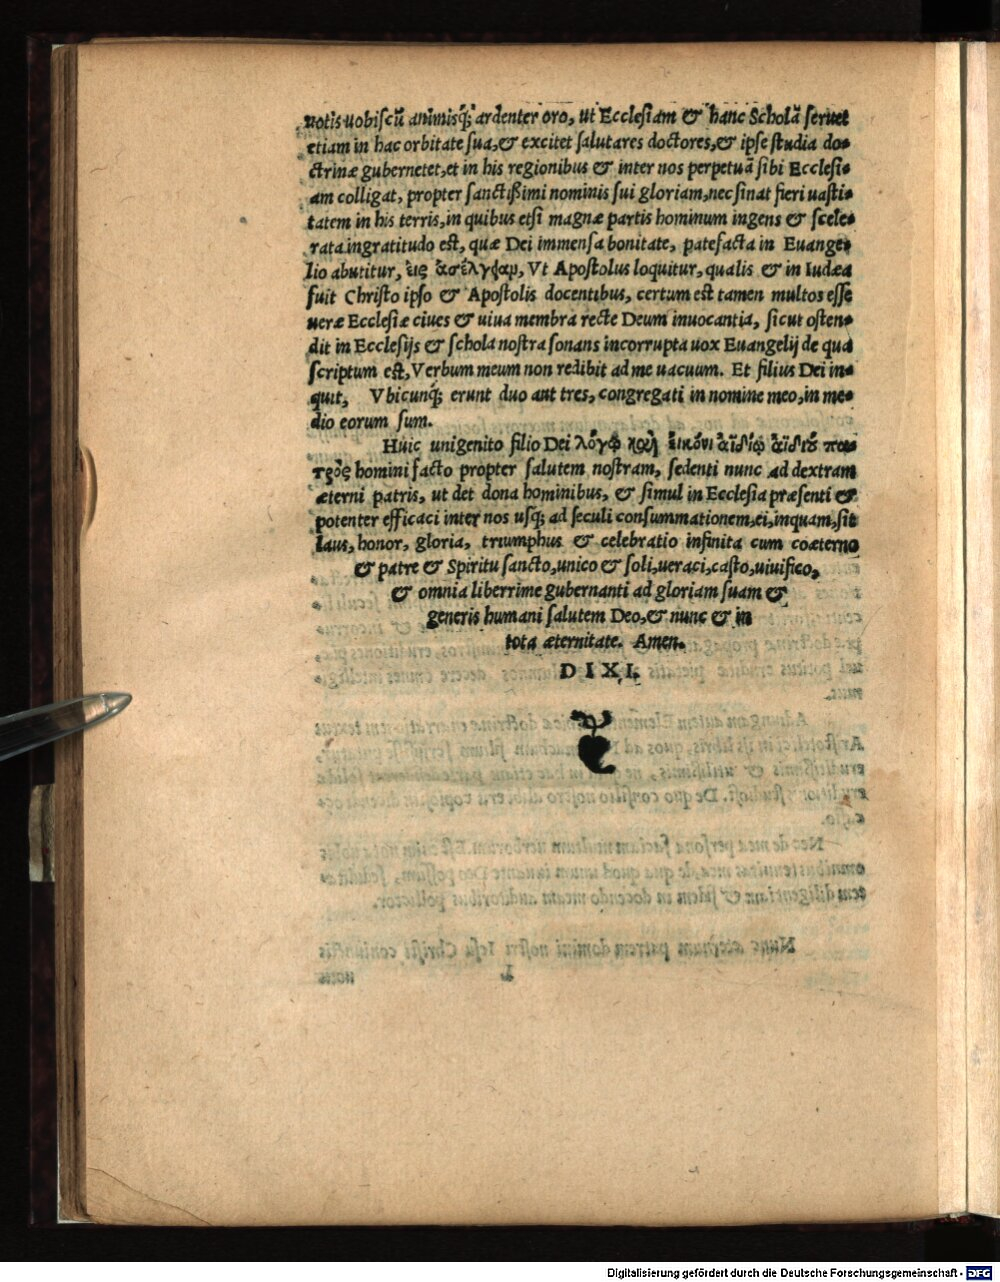 uotis uobiscũ animisq; ardenter oro, ut Ecclesiam & hanc Scholã seruet
etiam in hac orbitate sua, & excitet salutares doctores, & ipse studia do-
ctrinæ gubernetet, et in his regionibus & inter nos perpetuã sibi Ecclesi-
am colligat, propter sanctißimi nominis sui gloriam, nec sinat fieri uasti-
tatem in his terris, in quibus etsi magnæ partis hominum ingens & scele-
rata ingratitudo est, quæ Dei immensa bonitate, patefacta in Euange-
lio abutitur, εις ἀσέλγφαμ, Vt Apostolus loquitur, qualis & in Iudæa
fuit Christo ipso & Apostolis docentibus, certum est tamen multos esse
ueræ Ecclesiæ ciues & uiua membra recte Deum inuocantia, sicut osten-
dit in Ecclesijs & schola nostra sonans incorrupta uox Euangelij de qua
scriptum est, Verbum meum non redibit ad me uacuum. Et filius Dei in-
quit, Vbicunq; erunt duo aut tres, congregati in nomine meo, in me-
dio eorum sum.
Huic unigenito filio Dei λόγῳ καὶ ἐικόνι ἀϊδίῳ ἀϊδίου πα-
τρὸς homini facto propter salutem nostram, sedenti nunc ad dextram
æterni patris, ut det dona hominibus, & simul in Ecclesia præsenti &
potenter efficaci inter nos usq; ad seculi consummationem, ei, inquam, sit
laus, honor, gloria, triumphus & celebratio infinita cum coæterno
& patre & Spiritu sancto, unico & soli, ueraci, casto, uiuifico,
& omnia liberrime gubernanti ad gloriam suam &
generis humani salutem Deo, & nunc & in
tota æternitate. Amen.
DIXI.
Digitalisierung gefördert durch die Deutsche Forschungsgemeinschaft - DFG